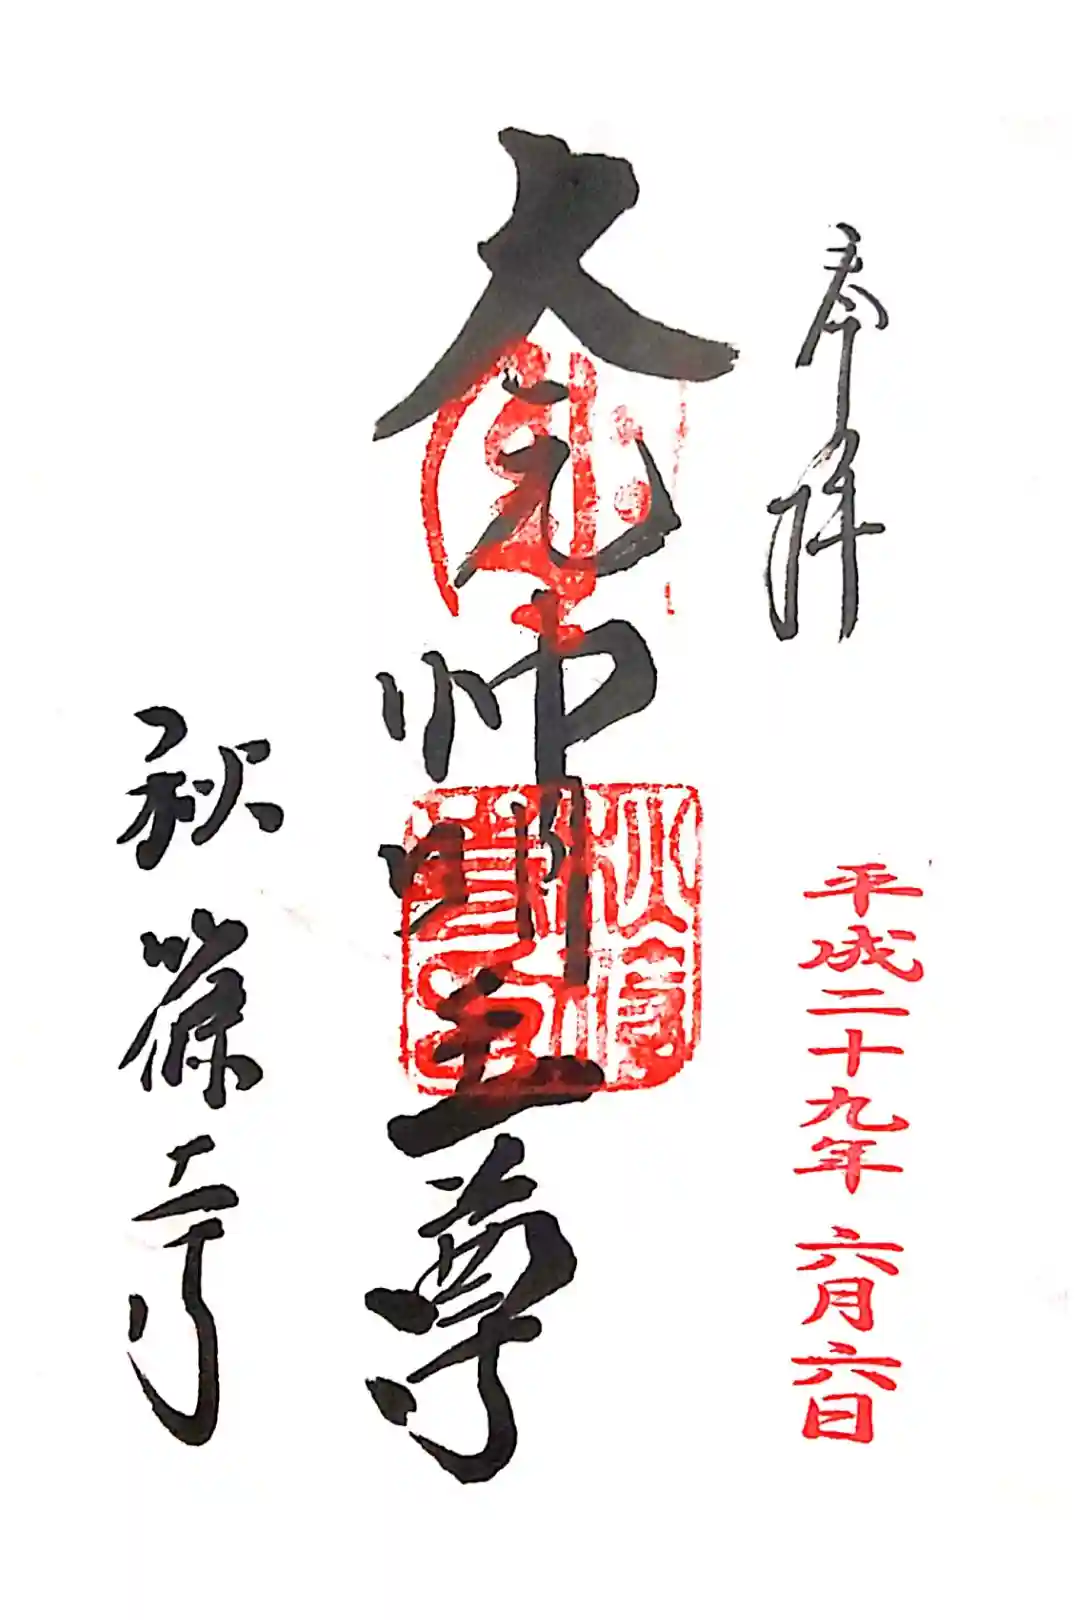 奉拝
平成二十九年 六月六日
大元帥明王尊
秋篠寺印
秋篠寺